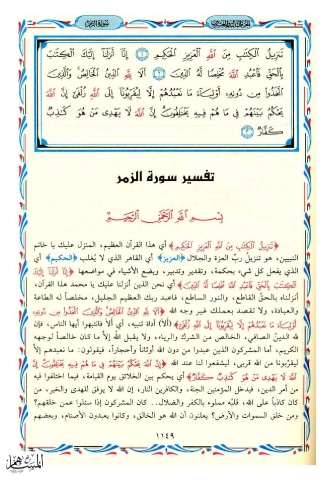 سورة الزمر
تَنزِيلُ الْكِتَٰبِ مِنَ اللَّهِ الْعَزِيزِ الْحَكِيمِ ۝١ إِنَّا أَنزَلْنَا إِلَيْكَ الْكِتَٰبَ
بِالْحَقِّ فَاعْبُدِ اللَّهَ مُخْلِصًا لَّهُ الدِّينَ ۝٢ أَلَا لِلَّهِ الدِّينُ الْخَالِصُ وَالَّذِينَ
اتَّخَذُوا مِن دُونِهِ أَوْلِيَاءَ مَا نَعْبُدُهُمْ إِلَّا لِيُقَرِّبُونَا إِلَى اللَّهِ زُلْفَىٰ إِنَّ اللَّهَ
يَحْكُمُ بَيْنَهُمْ فِي مَا هُمْ فِيهِ يَخْتَلِفُونَ إِنَّ اللَّهَ لَا يَهْدِي مَنْ هُوَ كَٰذِبٌ
كَفَّارٌ ۝٣
تفسير سورة الزمر
بِسْمِ اللَّهِ الرَّحْمَٰنِ الرَّحِيمِ
﴿تَنزِيلُ الْكِتَٰبِ مِنَ اللَّهِ الْعَزِيزِ الْحَكِيمِ﴾ أي هذا القرآن العظيم، المنزل عليك يا خاتم
النبيين، هو تنزيلُ ربِّ العزة والجلال ﴿العزيز﴾ أي القاهر الذي لا يُغلب ﴿الحكيم﴾ أي
الذي يفعل كل شيء بحكمة، وتقدير وتدبير، ويضع الأشياء في مواضعها ﴿إِنَّا أَنزَلْنَا إِلَيْكَ
الْكِتَٰبَ بِالْحَقِّ فَاعْبُدِ اللَّهَ مُخْلِصًا لَّهُ الدِّينَ﴾ أي نحن الذين أنزلنا عليك يا محمد هذا القرآن،
أنزلناه بالحق القاطع، والنور الساطع، فاعبد ربك العظيم الجليل، مخلصاً له الطاعة
والعبادة، ولا تقصد بعملك غير وجه الله ﴿أَلَا لِلَّهِ الدِّينُ الْخَالِصُ وَالَّذِينَ اتَّخَذُوا مِن دُونِهِ
أَوْلِيَاءَ مَا نَعْبُدُهُمْ إِلَّا لِيُقَرِّبُونَا إِلَى اللَّهِ زُلْفَىٰ﴾ ﴿ألا﴾ أداة تنبيه، أي ألا فانتبهوا أيها الناس، فإن
لله الدين الصافي، الخالص من الشرك والرياء، ولا يقبل الله إلاَّ ما كان خالصاً لوجهه
الكريم، أما المشركون الذين عبدوا من دون الله أوثاناً وأحجاراً، فيقولون: ما نعبدهم إلاَّ
ليقربونا من الله قربى، ليشفعوا لنا عند الله ﴿إِنَّ اللَّهَ يَحْكُمُ بَيْنَهُمْ فِي مَا هُمْ فِيهِ يَخْتَلِفُونَ إِنَّ
اللَّهَ لَا يَهْدِي مَنْ هُوَ كَٰذِبٌ كَفَّارٌ﴾ أي يحكم بين الخلائق يوم القيامة، فيما اختلفوا فيه
من أمر الدين، فيدخل المؤمنين الجنة، والكافرين النار، إن الله لا يوفق للهدى والخير، من
كان كاذباً على الله، قلبُه مملوء بالكفر والضلال.. كان المشركون إذا سئلوا عمن خلقهم؟
ومن خلق السموات والأرض؟ يعلنون أن الله هو الخالق، وكانوا يعبدون الأصنام، وبعضهم
١١٤٩